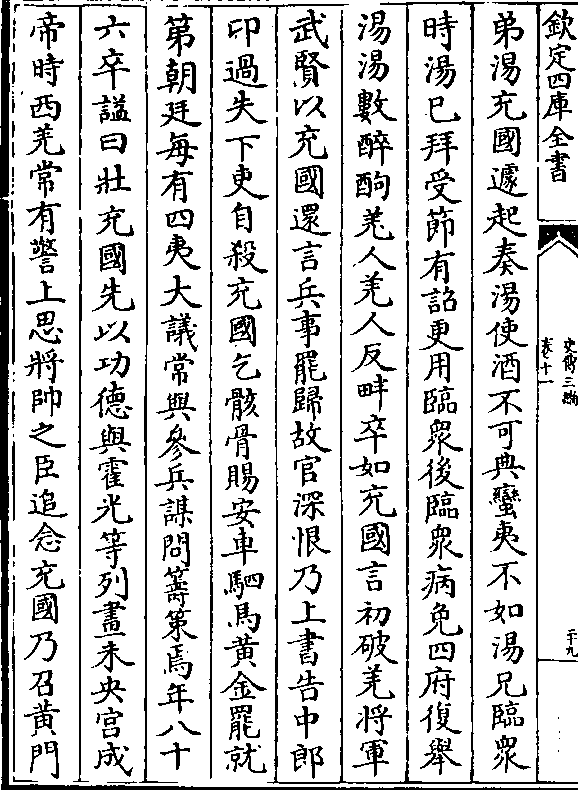 欽定四庫全書
史傳三編
卷十一
二十九
弟湯充國遽起奏湯使酒不可典蠻夷不如湯兄臨衆
時湯已拜受節有詔更用臨衆後臨衆病免四府復舉
湯湯數醉酗羌人羌人反畔卒如充國言初破羌將軍
武賢以充國還言兵事罷歸故官深恨乃上書告中郎
卬過失下吏自殺充國乞骸骨賜安車駟馬黄金罷就
第朝廷每有四夷大議常與參兵謀問籌策焉年八十
六卒諡曰壯充國先以功德與霍光等列畫未央宫成
帝時西羌常有警上思將帥之臣追念充國乃召黄門